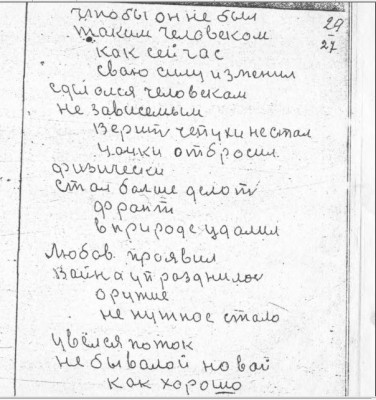 29
27
чтобы он не был
таким человеком
как сейчас
сваю силу изменил
сделался человекам
не зависемым
верит чепухи не стал
цацки отбросил
физически
стал болше делоть
форант
в природе удалил
Любов проявил
Вайна упразднилос
оружие
не нужное стало
увёлся поток
не бывалой новай
как хорошо